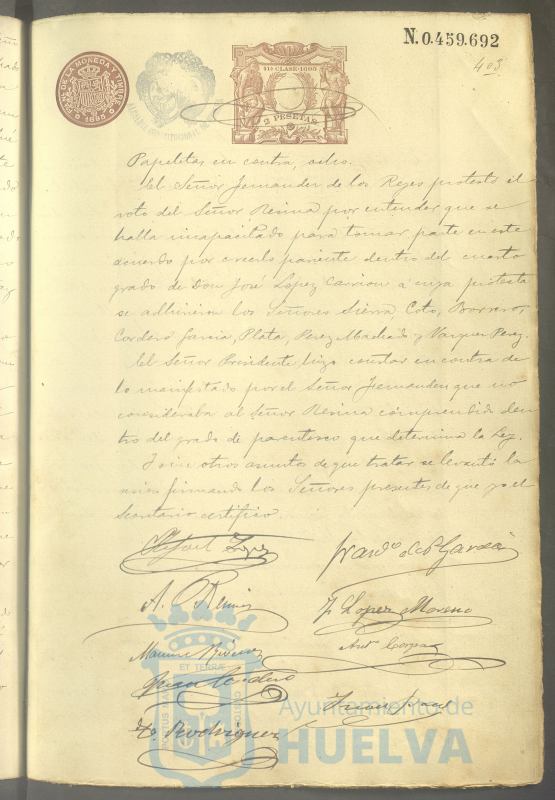 N. 0.459.692
403
FCA. DE LA MONEDA Y TIMBRE
1895
11ª CLASE-1895
2 PESETAS
Papeletas en contra, ocho.
El Señor Fernandez de los Reyes protestó el
voto del Señor Reina por entender que se
halla incapacitado para tomar parte en este
acuerdo por creerlo pariente dentro del cuarto
grado de Don José López Carrion á cuya protesta
se adhirieron los Señores Sierra, Coto, Borrero,
Cordero Garcia, Plata, Perez Machado y Vazquez Perez.
El Señor Presidente hizo constar en contra de
lo manifestado por el Señor Fernandez que no
consideraba al Señor Reina comprendido den
tro del grado de parentesco que determina la Ley.
Y sin otros asuntos de que tratar se levantó la
sesion firmando los Señores presentes de que yo el
Secretario certifico.
Rafael Lopez
Franco de P. Garcia
A. Reina
J. Lopez Moreno
Anto Corpas
Juan Cordero
Fo. Rodriguez
ET TERRÆ
PORTUS
Ayuntamiento de
HUELVA